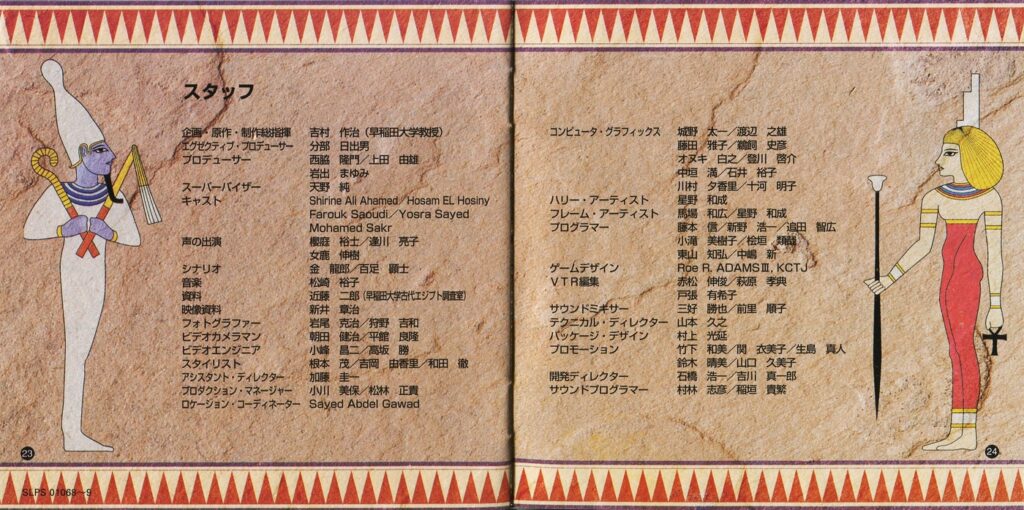 スタッフ
企画・原作・制作総指揮 吉村 作治(早稲田大学教授)
エグゼクティブ・プロデューサー 分部 日出男
プロデューサー 西脇 隆門/上田 由雄
岩出 まゆみ
スーパーバイザー 天野 純
キャスト Shirine Ali Ahamed/Hosam EL Hosiny
Farouk Saoudi/Yosra Sayed
Mohamed Sakr
声の出演 櫻庭 裕士/逢川 亮子
女鹿 伸樹
シナリオ 金 龍郎/百足 顕士
音楽 松崎 裕子
資料 近藤 二郎(早稲田大学古代エジプト調査室)
映像資料 新井 章治
フォトグラファー 岩尾 克治/狩野 吉和
ビデオカメラマン 朝田 健治/平館 良隆
ビデオエンジニア 小峰 昌二/高坂 勝
スタイリスト 根本 茂/吉岡 由香里/和田 徹
アシスタント・ディレクター 加藤 圭一
プロダクション・マネージャー 小川 美保/松林 正貴
ロケーション・コーディネーター Sayed Abdel Gawad
23
SLPS 01068〜9
コンピュータ・グラフィックス 城野 太一/渡辺 之雄
藤田 雅子/鵜飼 史彦
オヌキ 白之/登川 啓介
中垣 満/石井 裕子
川村 夕香里/十河 明子
ハリー・アーティスト 星野 和成
フレーム・アーティスト 馬場 和広/星野 和成
プログラマー 藤本 信/新野 浩一/追田 智広
小滝 美樹子/桧垣
東山 知弘/中嶋 新
ゲームデザイン Roe R. ADAMSⅢ, KCTJ
VTR編集 赤松 伸俊/萩原 孝典
戸張 有希子
サウンドミキサー 三好 勝也/前里 順子
テクニカル・ディレクター 山本 久之
パッケージ・デザイン 村上 光延
プロモーション 竹下 和美/関 衣美子/生島 真人
鈴木 晴美/山口 久美子
開発ディレクター 石橋 浩一/吉川 真一郎
サウンドプログラマー 村林 志彦/稲垣 貴繁
24